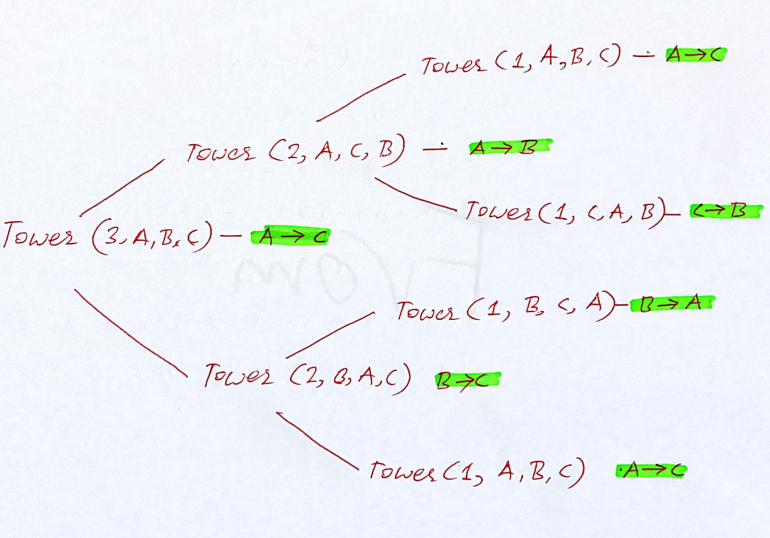 Tower (1, A, B, C) — A → C
Tower (2, A, C, B) — A → B
Tower (1, C, A, B) — C → B
Tower (3, A, B, C) — A → C
Tower (1, B, C, A) — B → A
Tower (2, B, A, C) B → C
Tower (1, A, B, C) A → C